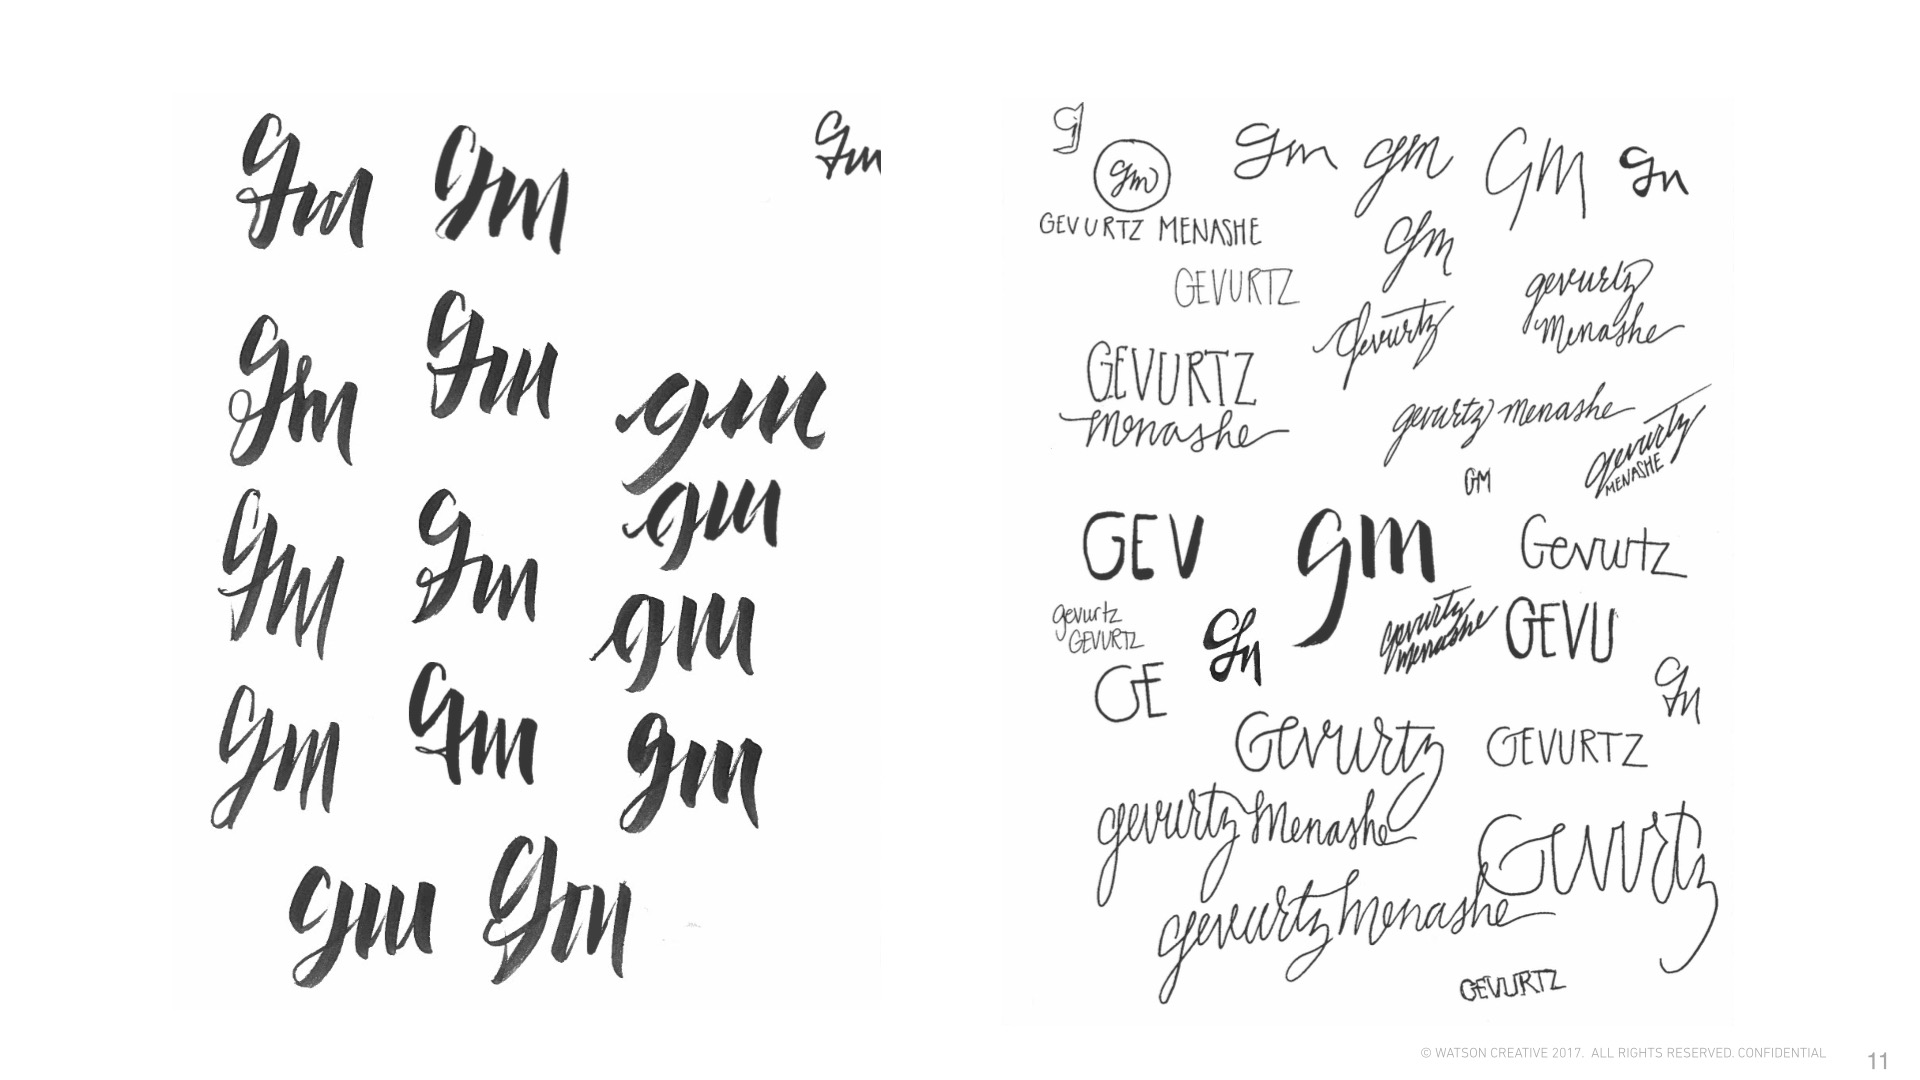 gm gm gm
gm gm
gm
gm gm
gm
gm
gm gm
gm
gm gm
g
gm gm gm GM gm
GEVURTZ MENASHE
gm
GEVURTZ
gevurtz
menashe
Gevurtz
GEVURTZ
menashe
gevurtz menashe
gevurtz
MENASHE
GM
GEV gm Gevurtz
gevurtz
GEVURTZ
gm
gevurtz
menashe
GEVU
GE
gm
Gevurtz GEVURTZ
gevurtz menashe
Gevurtz
gevurtz menashe
GEVURTZ
© WATSON CREATIVE 2017. ALL RIGHTS RESERVED. CONFIDENTIAL
11